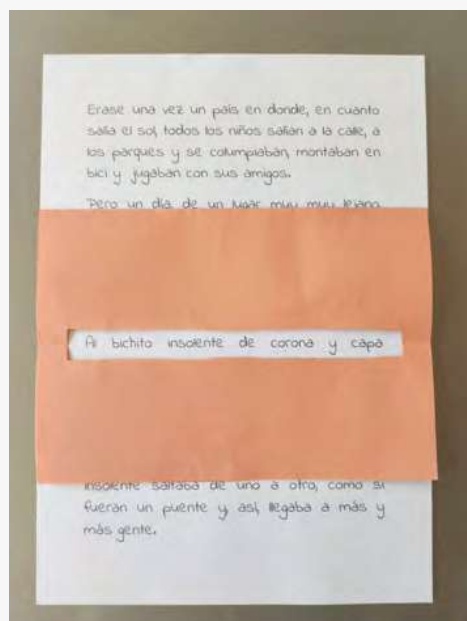 Erase una vez un país en donde, en cuanto
salía el sol, todos los niños salían a la calle, a
los parques y se columpiaban, montaban en
bici y jugaban con sus amigos.
Pero un día de un lugar muy muy lejano
Al bichito insolente de corona y capa
insolente saltaba de uno a otro, como si
fueran un puente y, así, llegaba a más y
más gente.